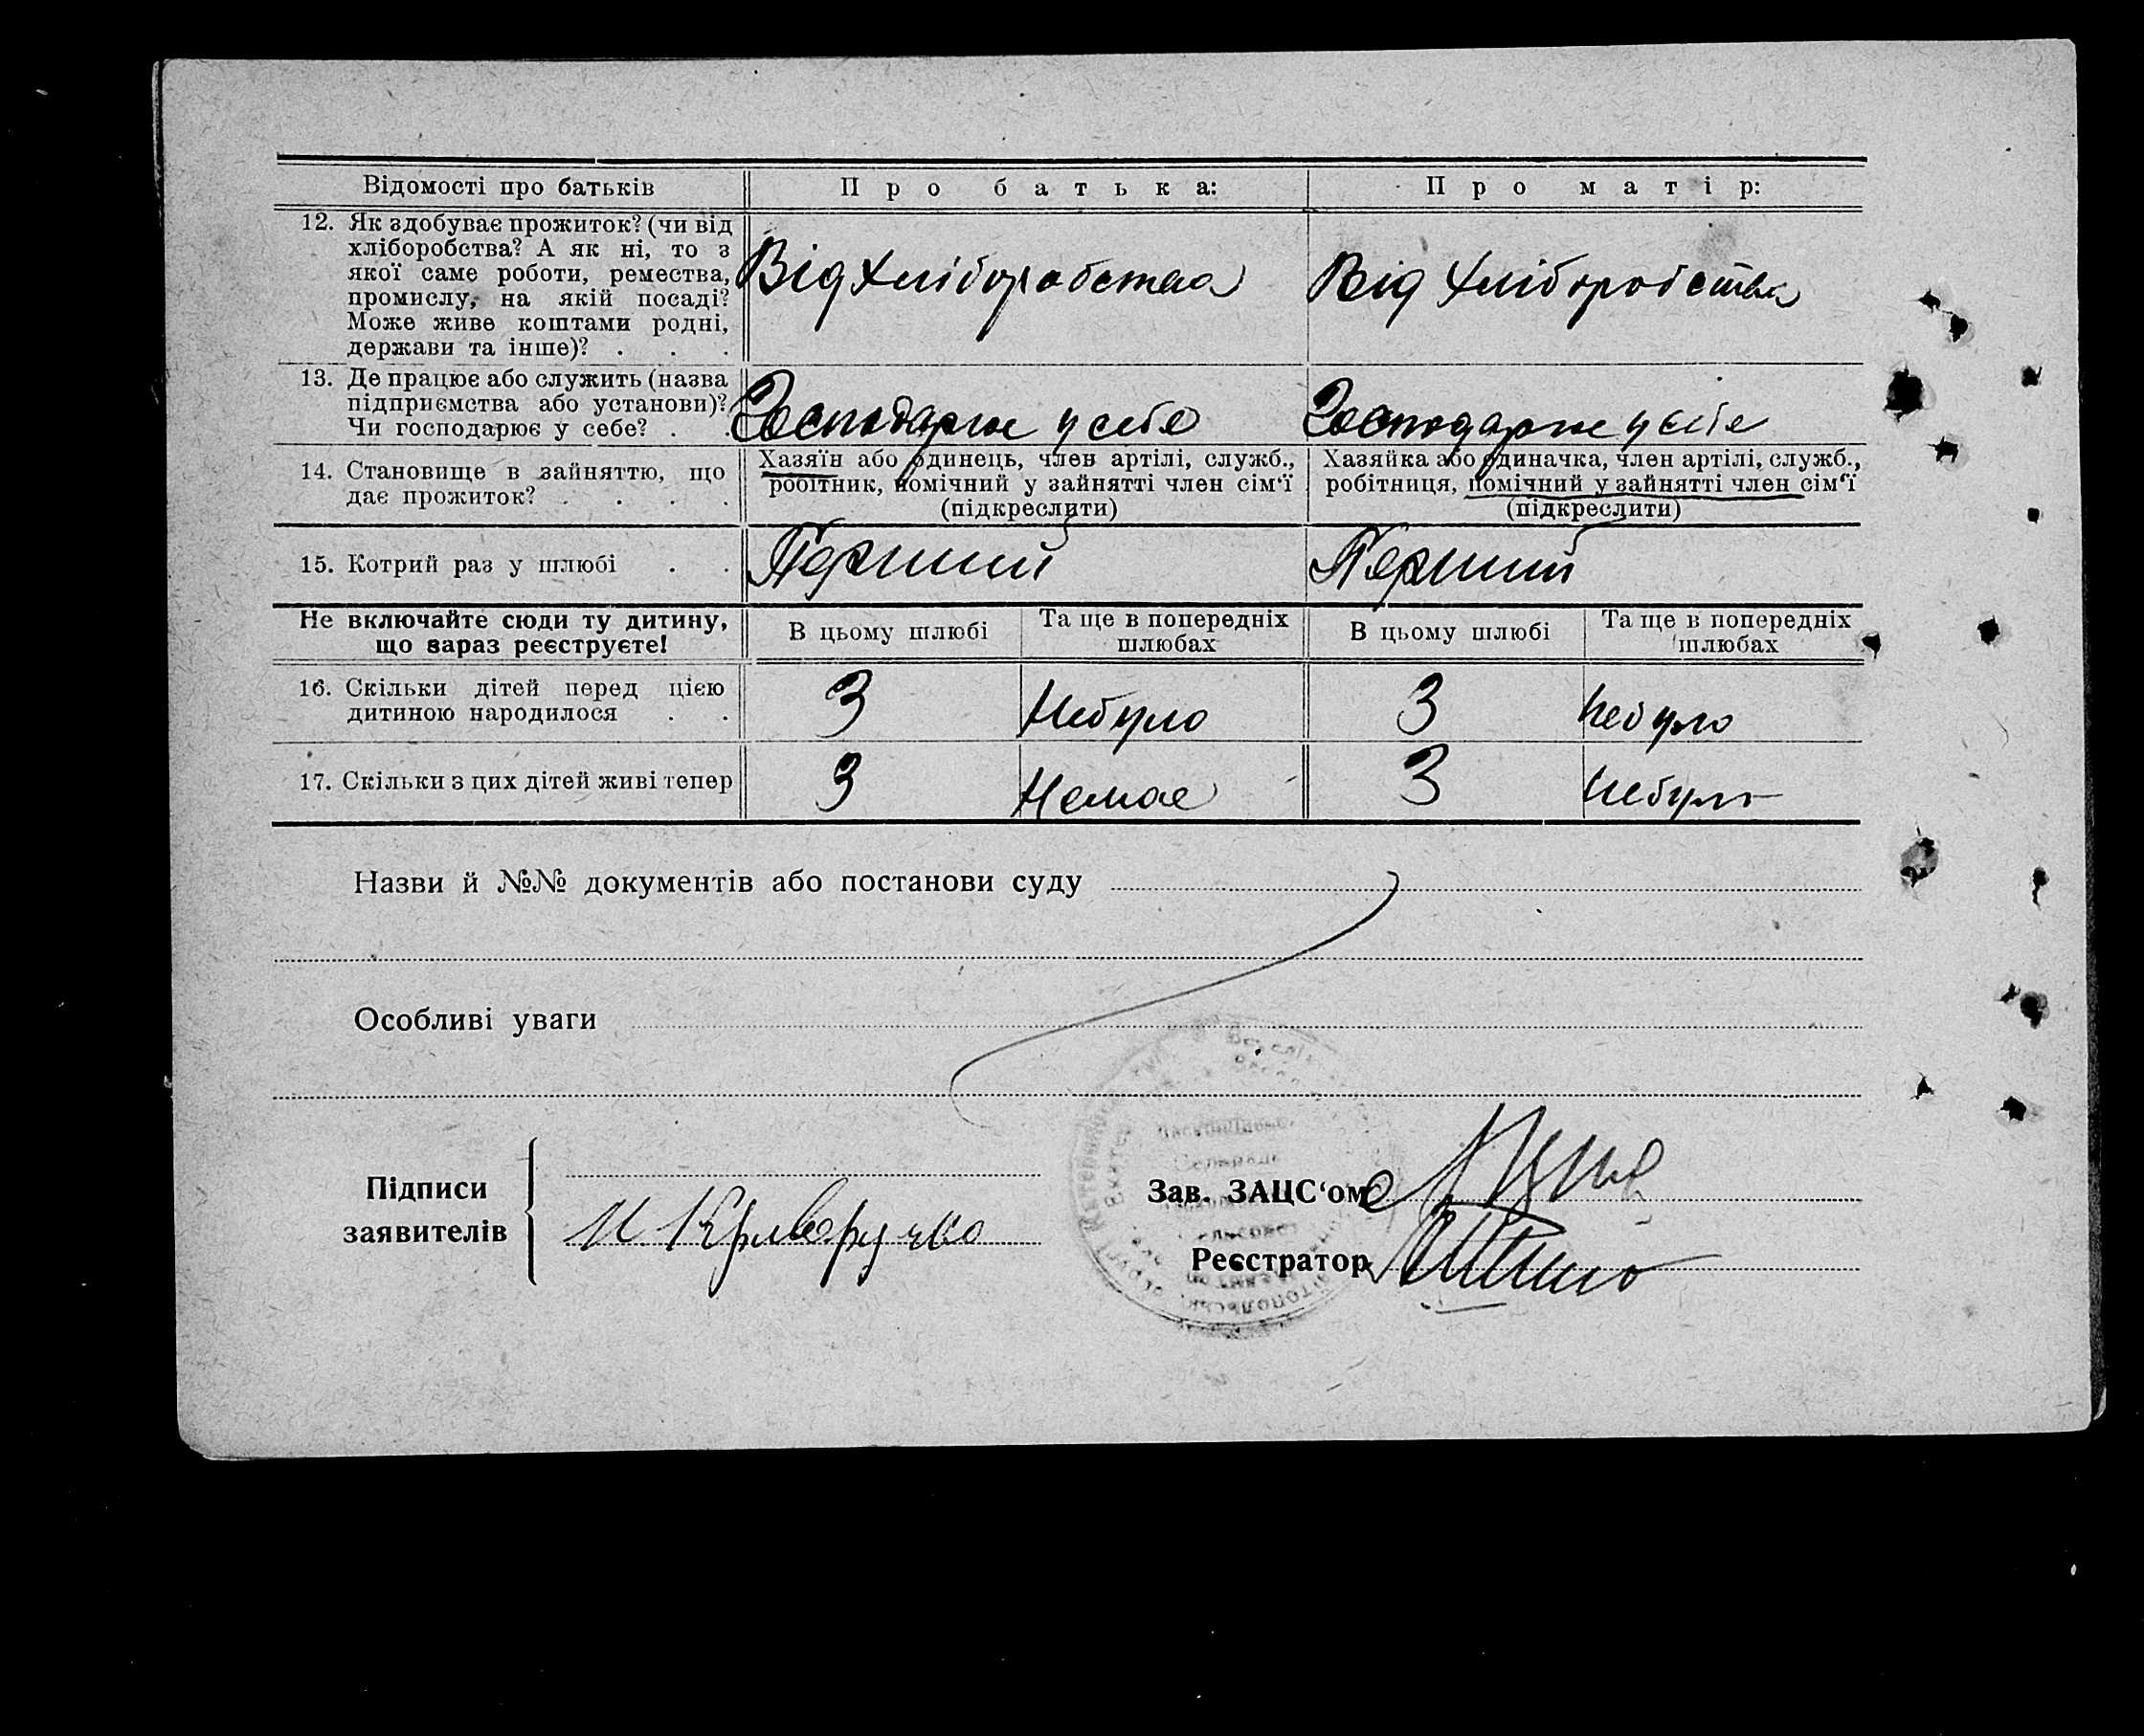 Відомості про батьків
Про батька:
Про матір:
12. Як здобуває прожиток? (чи від
хліборобства? А як ні, то з
якої саме роботи, ремества,
промислу, на якій посаді?
Може живе коштами родні,
держави та інше)? . . .
Від хліборобства
Від хліборобства
13. Де працює або служить (назва
підприємства або установи)?
Чи господарює у себе? . .
Господарює у себе
Господарює у себе
14. Становище в зайняттю, що
дає прожиток? . . . .
Хазяїн або одинець, член артілі, служб.,
робітник, помічний у зайнятті член сім'ї
(підкреслити)
Хазяйка або одиначка, член артілі, служб.,
робітниця, помічний у зайнятті член сім'ї
(підкреслити)
15. Котрий раз у шлюбі . .
Перший
Перший
Не включайте сюди ту дитину,
що зараз реєструєте!
В цьому шлюбі
Та ще в попередніх
шлюбах
В цьому шлюбі
Та ще в попередніх
шлюбах
16. Скільки дітей перед цією
дитиною народилося . .
3
Небуло
3
Небуло
17. Скільки з цих дітей живі тепер
3
Немає
3
Небуло
Назви й №№ документів або постанови суду
Особливі уваги
Підписи
заявителів
И Криворучко
Зав. ЗАЦС‘ом
Реєстратор